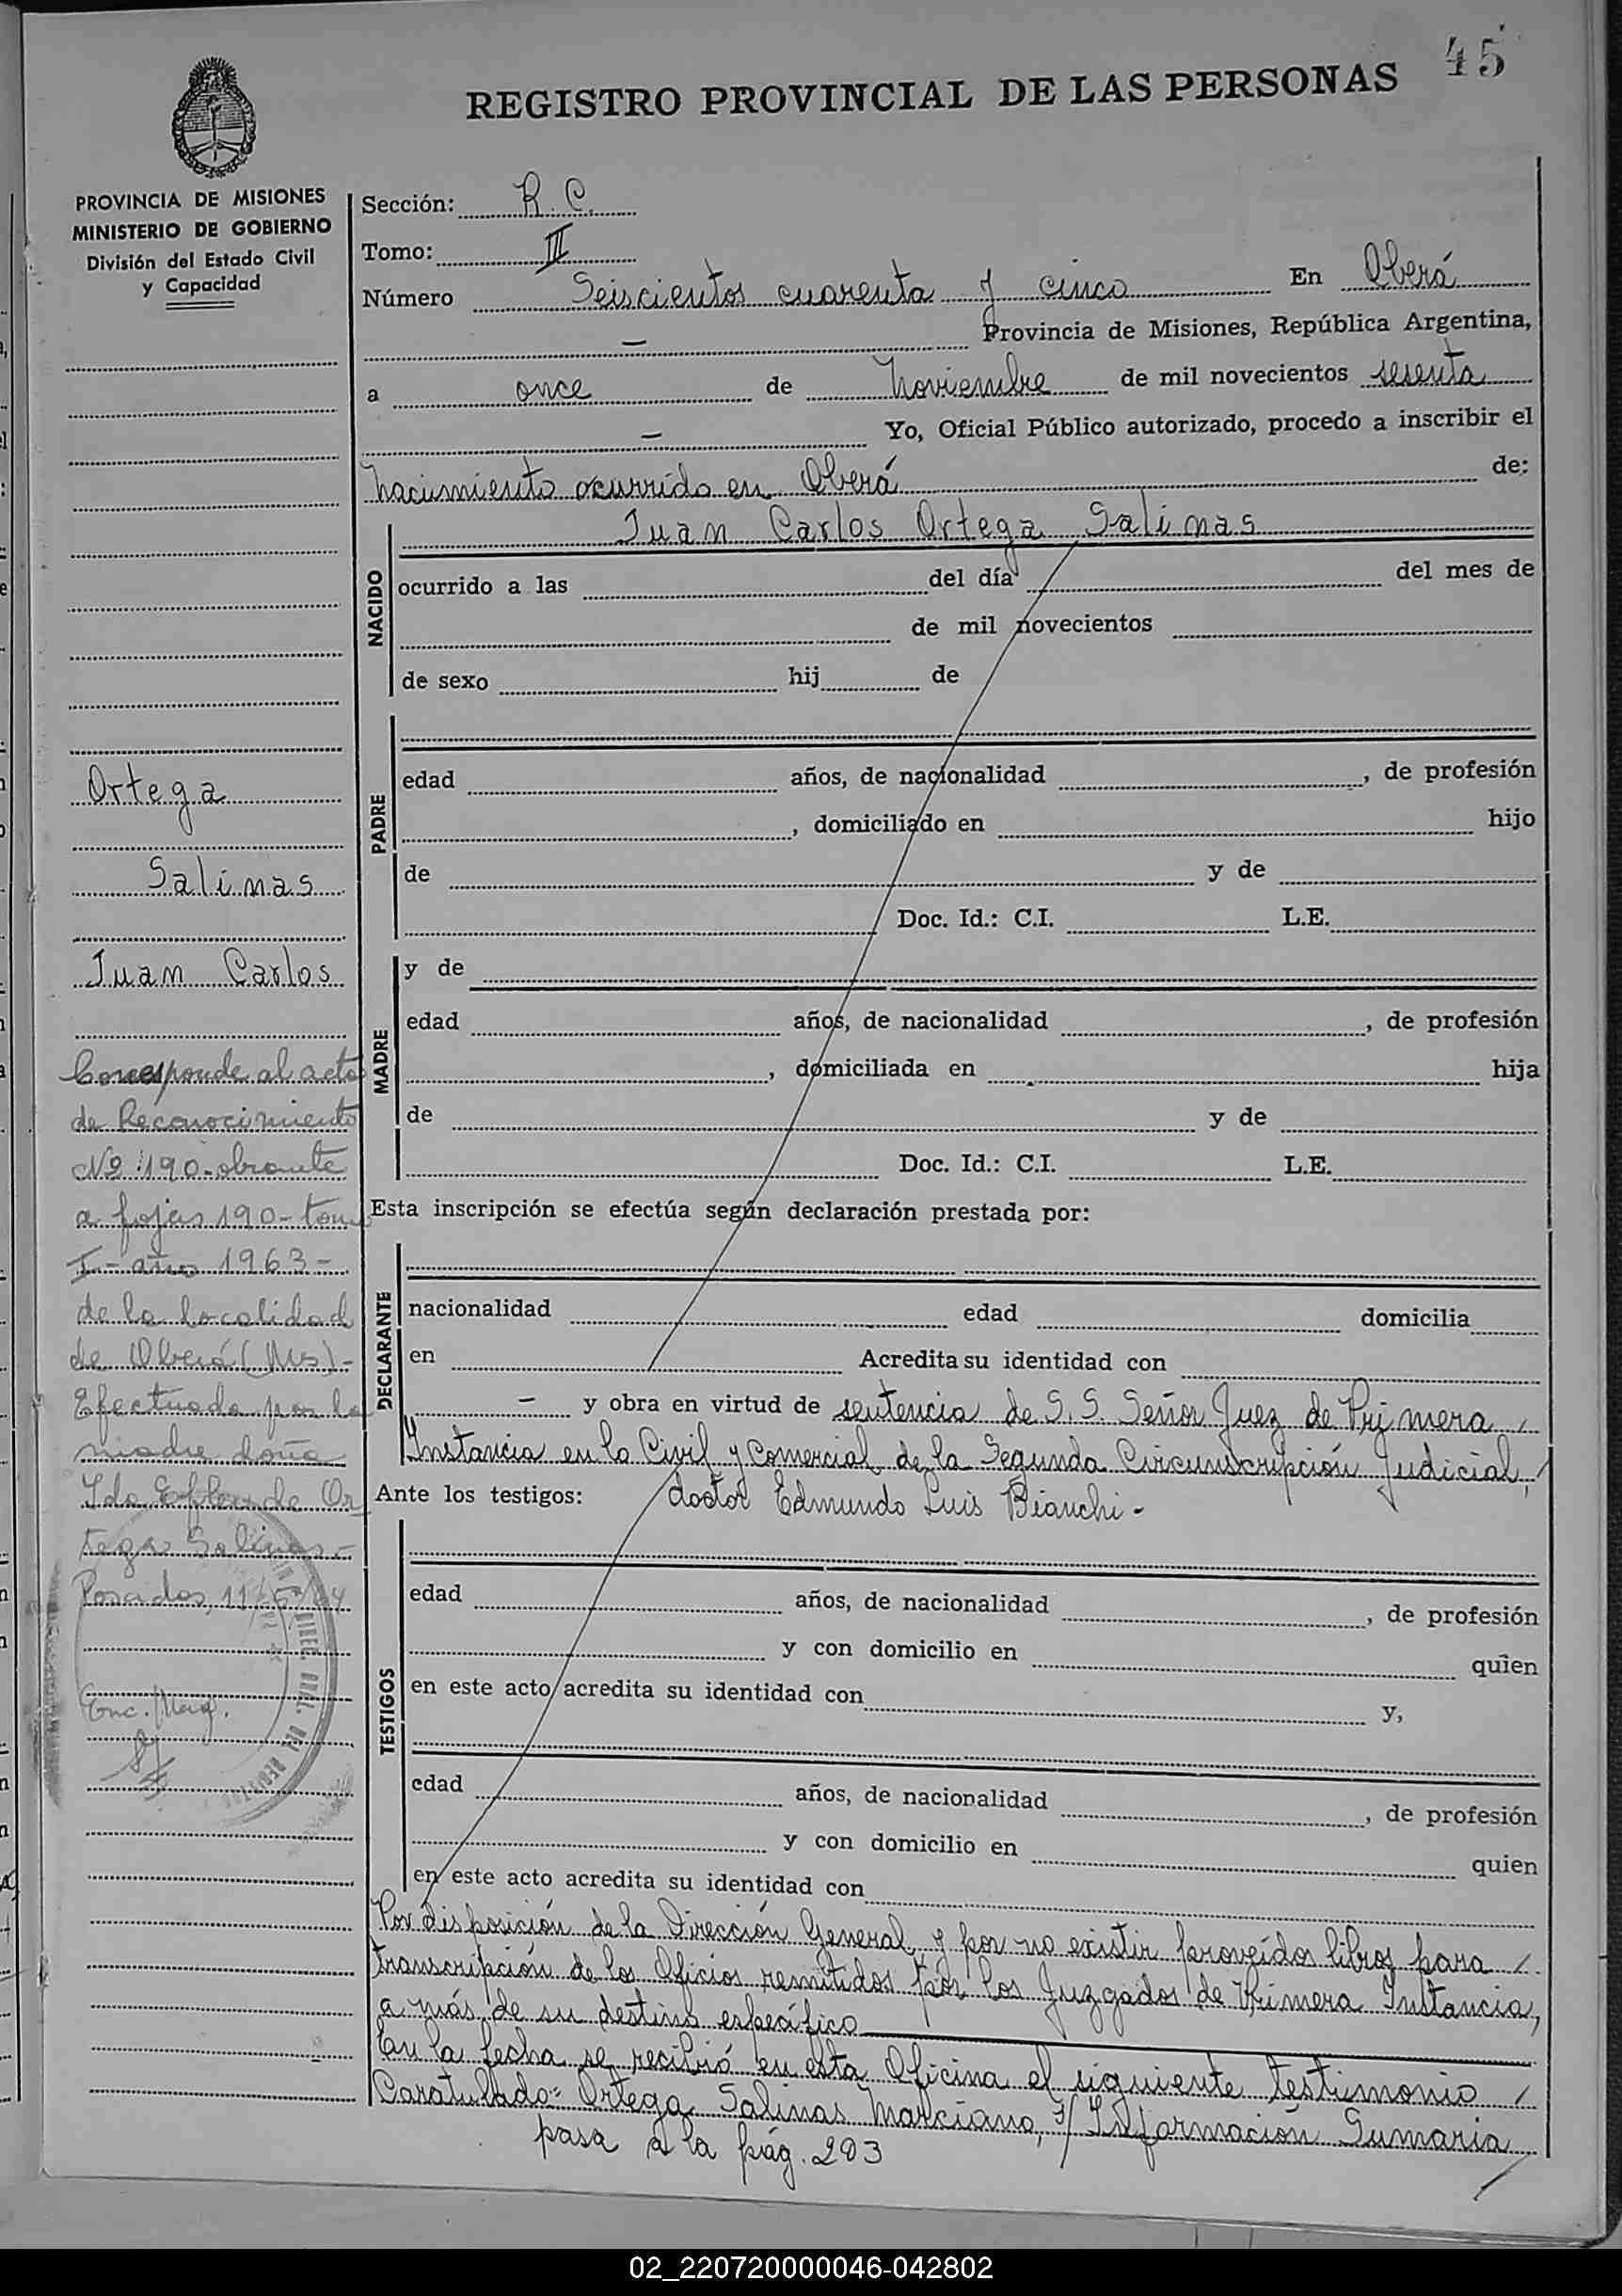 45
REGISTRO PROVINCIAL DE LAS PERSONAS
PROVINCIA DE MISIONES
MINISTERIO DE GOBIERNO
División del Estado Civil
y Capacidad
Ortega
Salinas
Juan Carlos
Corresponde al acta
de Reconocimiento
Nº 190-obrante
a fojas 190-tomo
I-año 1963-
de la localidad
de Oberá (Ms)-
Efectuada por la
madre doña
Ida de Or
tega Salinas-
Posadas, 11/5/
Enc.
Sección: R. C.
Tomo: III
Número Seiscientos cuarenta y cinco En Oberá
— Provincia de Misiones, República Argentina,
a once de Noviembre de mil novecientos sesenta
— Yo, Oficial Público autorizado, procedo a inscribir el
nacimiento ocurrido en Oberá de:
Juan Carlos Ortega Salinas
NACIDO
ocurrido a las del día del mes de
de mil novecientos
de sexo hij de
PADRE
edad años, de nacionalidad , de profesión
, domiciliado en hijo
de y de
Doc. Id.: C.I. L.E.
MADRE
y de
edad años, de nacionalidad , de profesión
, domiciliada en hija
de y de
Doc. Id.: C.I. L.E.
Esta inscripción se efectúa según declaración prestada por:
DECLARANTE
nacionalidad edad domicilia
en Acredita su identidad con
— y obra en virtud de sentencia de S. S. Señor Juez de Primera /
Instancia en lo Civil y Comercial de la Segunda Circunscripción Judicial, /
Ante los testigos: doctor Edmundo Luis Bianchi -
TESTIGOS
edad años, de nacionalidad , de profesión
y con domicilio en quien
en este acto acredita su identidad con y,
edad años, de nacionalidad , de profesión
y con domicilio en quien
en este acto acredita su identidad con
Por disposición de la Dirección General, y por no existir proveídos libros para /
transcripción de los Oficios remitidos por los Juzgados de Primera Instancia,
a más de su destino específico
En la fecha se recibió en esta Oficina el siguiente testimonio /
Caratulado: Ortega Salinas Marciano, s/ Información Sumaria
pasa a la pág. 203
02_220720000046-042802